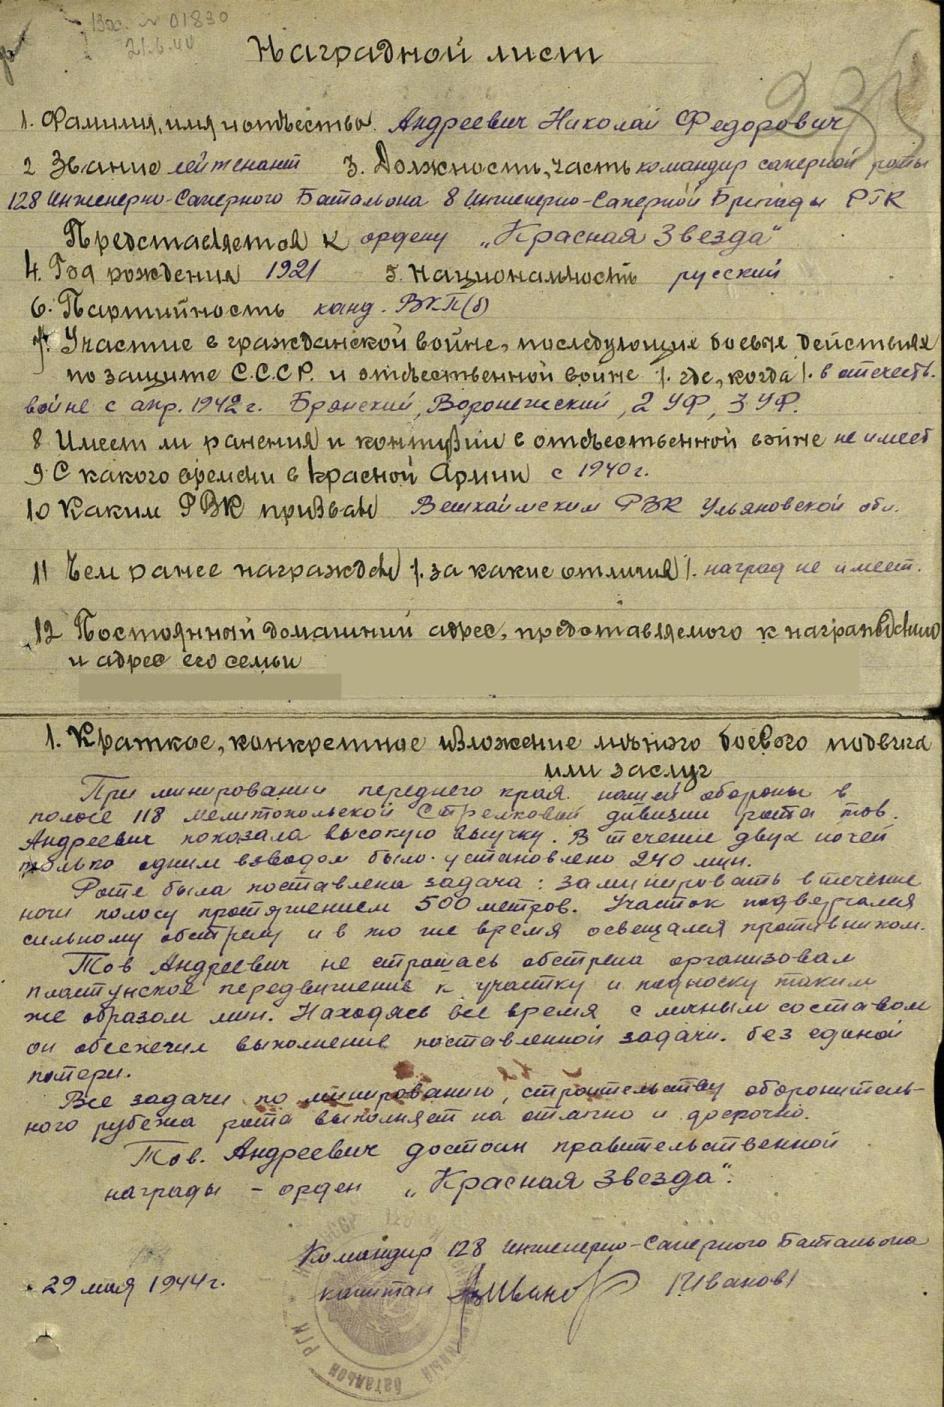 Вх. № 01830
21.6.44
Наградной лист
1. Фамилия, имя и отчество Андреевич Николай Федорович
2 Звание лейтенант 3. Должность, часть командир саперной роты
128 Инженерно-Саперного Батальона 8 Инженерно-Саперной Бригады РГК
Представляется к ордену „Красная Звезда"
4. Год рождения 1921 5. Национальность русский
6. Партийность канд. ВКП(б)
7. Участие в гражданской войне, последующие боевые действиях
по защите С.С.С.Р. и отечественной войне /. где, когда /. в отечеств.
войне с апр. 1942 г. Брянский, Воронежский, 2 УФ, 3 УФ.
8 Имеет ли ранения и контузии в отечественной войне не имеет
9 С какого времени в Красной Армии с 1940 г.
10 Каким РВК призван Вешкаймским РВК Ульяновской обл.
11 Чем ранее награжден /. за какие отличия /. наград не имеет.
12 Постоянный домашний адрес, представляемого к награждению
и адрес его семьи
1. Краткое, конкретное изложение личного боевого подвига
или заслуг
При минировании переднего края нашей обороны в
полосе 118 Мелитопольской Стрелковой дивизии рота тов.
Андреевич показала высокую выучку. В течение двух ночей
только одним взводом было установлено 240 мин.
Роте была поставлена задача: заминировать в течение
ночи полосу протяжением 500 метров. Участок подвергался
сильному обстрелу и в то же время освещался противником.
Тов Андреевич не страшась обстрела организовал
пластунское передвижение к участку и подноску таким
же образом мин. Находясь все время с личным составом
он обеспечил выполнение поставленной задачи. без единой
потери.
Все задачи по минированию, строительству оборонитель-
ного рубежа рота выполняет на отлично и досрочно.
Тов. Андреевич достоин правительственной
награды - орден „Красная Звезда".
Командир 128 Инженерно-Саперного Батальона
29 мая 1944 г. капитан Иванов /Иванов/
батальон РГК